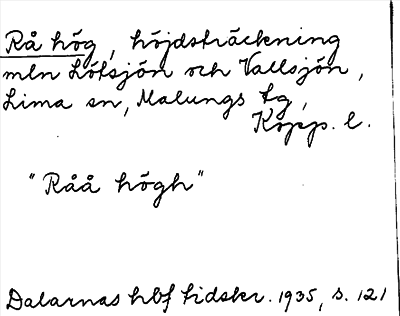 Rå hög, höjdsträckning
mln Lötsjön och Vallsjön,
Lima sn, Malungs tg,
Kopp. l.
"Råå högh"
Dalarnas hbf tidskr. 1935, s. 121